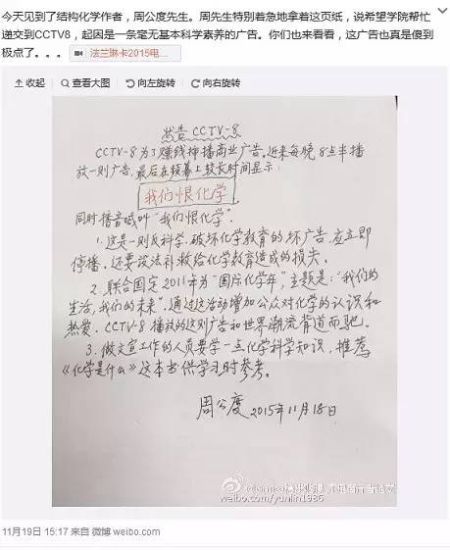 今天见到了结构化学作者，周公度先生。周先生特别着急地拿着这页纸，说希望学院帮忙
递交到CCTV8，起因是一条毫无基本科学素养的广告。你们也来看看，这广告也真是傻到
极点了。。。 法兰琳卡2015电...
收起 查看大图 向左旋转 向右旋转
CCTV-8
CCTV-8为了赚钱插播商业广告。近来每晚8点半播
放一则广告,最后在频幕上较长时间显示:
我们恨化学
同时播音喊叫“我们恨化学”.
1.这是一则反科学,破坏化学教育的坏广告,应立即
停播,还要设法补救给化学教育造成的损失。
2.联合国定2011年为“国际化学年”,主题是:“我们的
生活,我们的未来”,通过这活动增加公众对化学的认识和
热爱。CCTV-8播放的这则广告和世界潮流背道而驰。
3.做文宣工作的人员要学一点化学科学知识,推荐
《化学是什么》这本书供学习时参考。
周公度 2015年11月18日
weibo.com/yunlin1986
11月19日 15:17 来自 微博 weibo.com